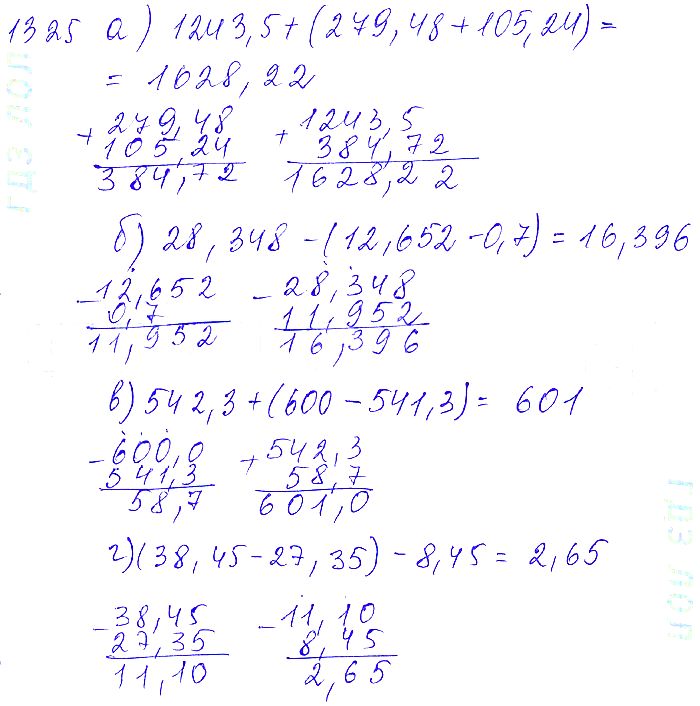 1325 а) 1243,5+(279,48+105,24)=
= 1628,22
+279,48 +1243,5
105,24 384,72
384,72 1628,22
б) 28,348-(12,652-0,7)=16,396
-12,652 -28,348
0,7 11,952
11,952 16,396
в) 542,3+(600-541,3)= 601
-600,0 +542,3
541,3 58,7
58,7 601,0
г)(38,45-27,35)-8,45=2,65
-38,45 -11,10
27,35 8,45
11,10 2,65
ГДЗ ЛОЛ
ГДЗ ЛОЛ